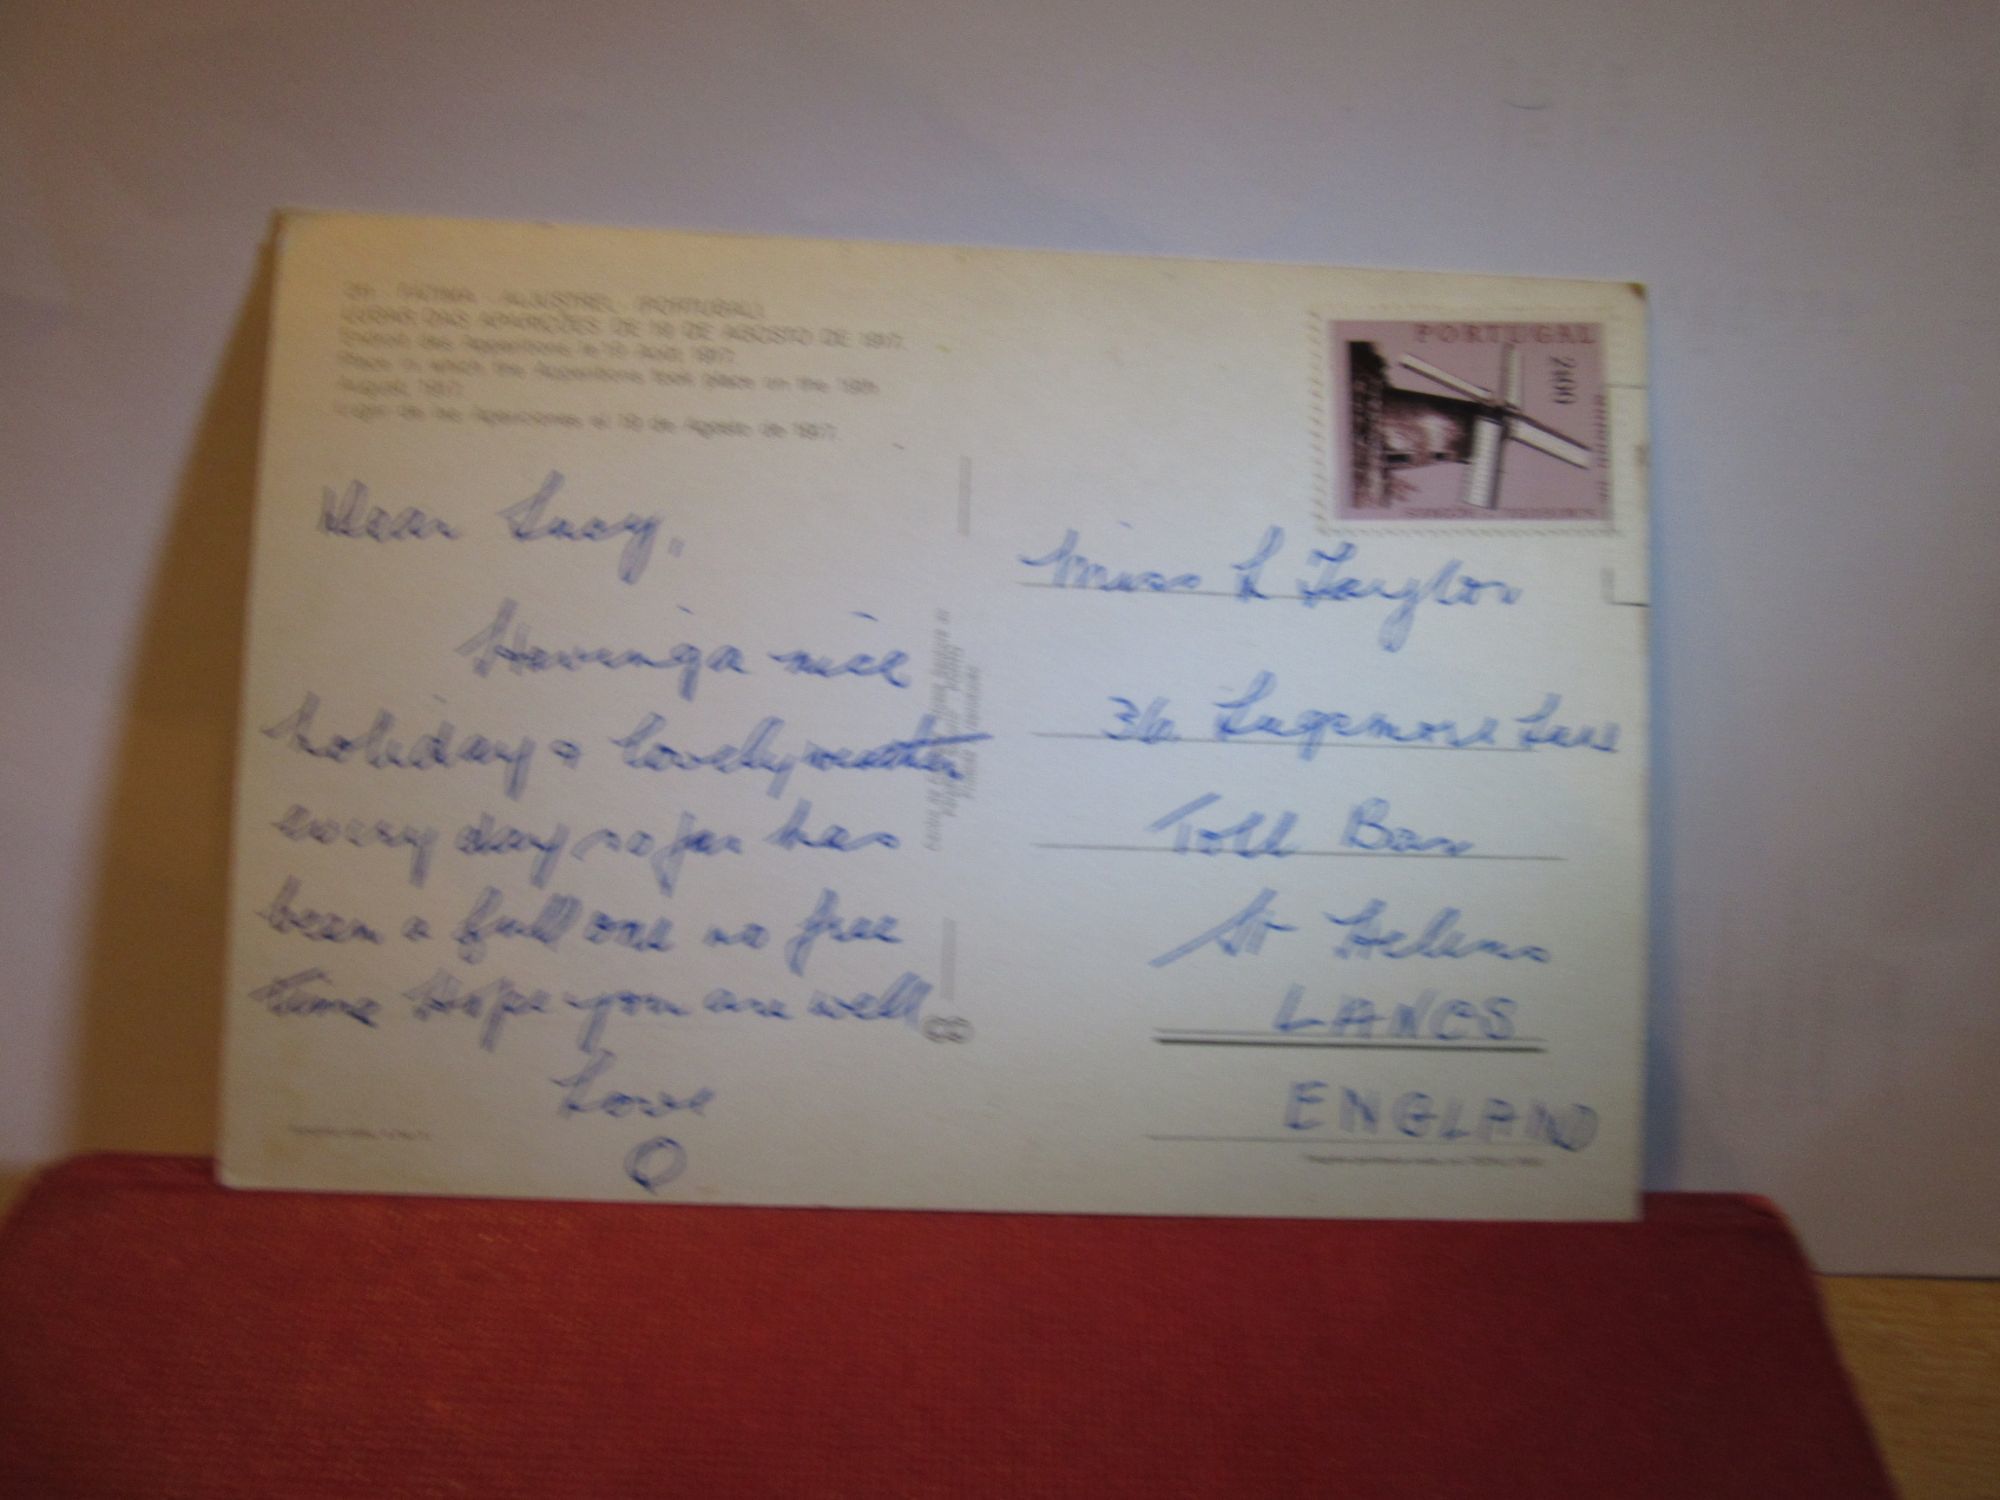 FATIMA - ALJUSTREL (PORTUGAL)
LUGAR DAS APARIÇÕES DE 19 DE AGOSTO DE 1917.
Endroit des Apparitions le 19 Août 1917.
Place in which the Apparitions took place on the 19th
August, 1917.
Lugar de las Apariciones el 19 de Agosto de 1917.
Dear Lucy,
Having a nice
holiday & lovely weather
every day so far has
been a full one no free
time Hope you are well
Love
O
PORTUGAL
2$00
Miss L Taylor
36 Lugsmore Lane
Toll Bar
St Helens
LANCS
ENGLAND